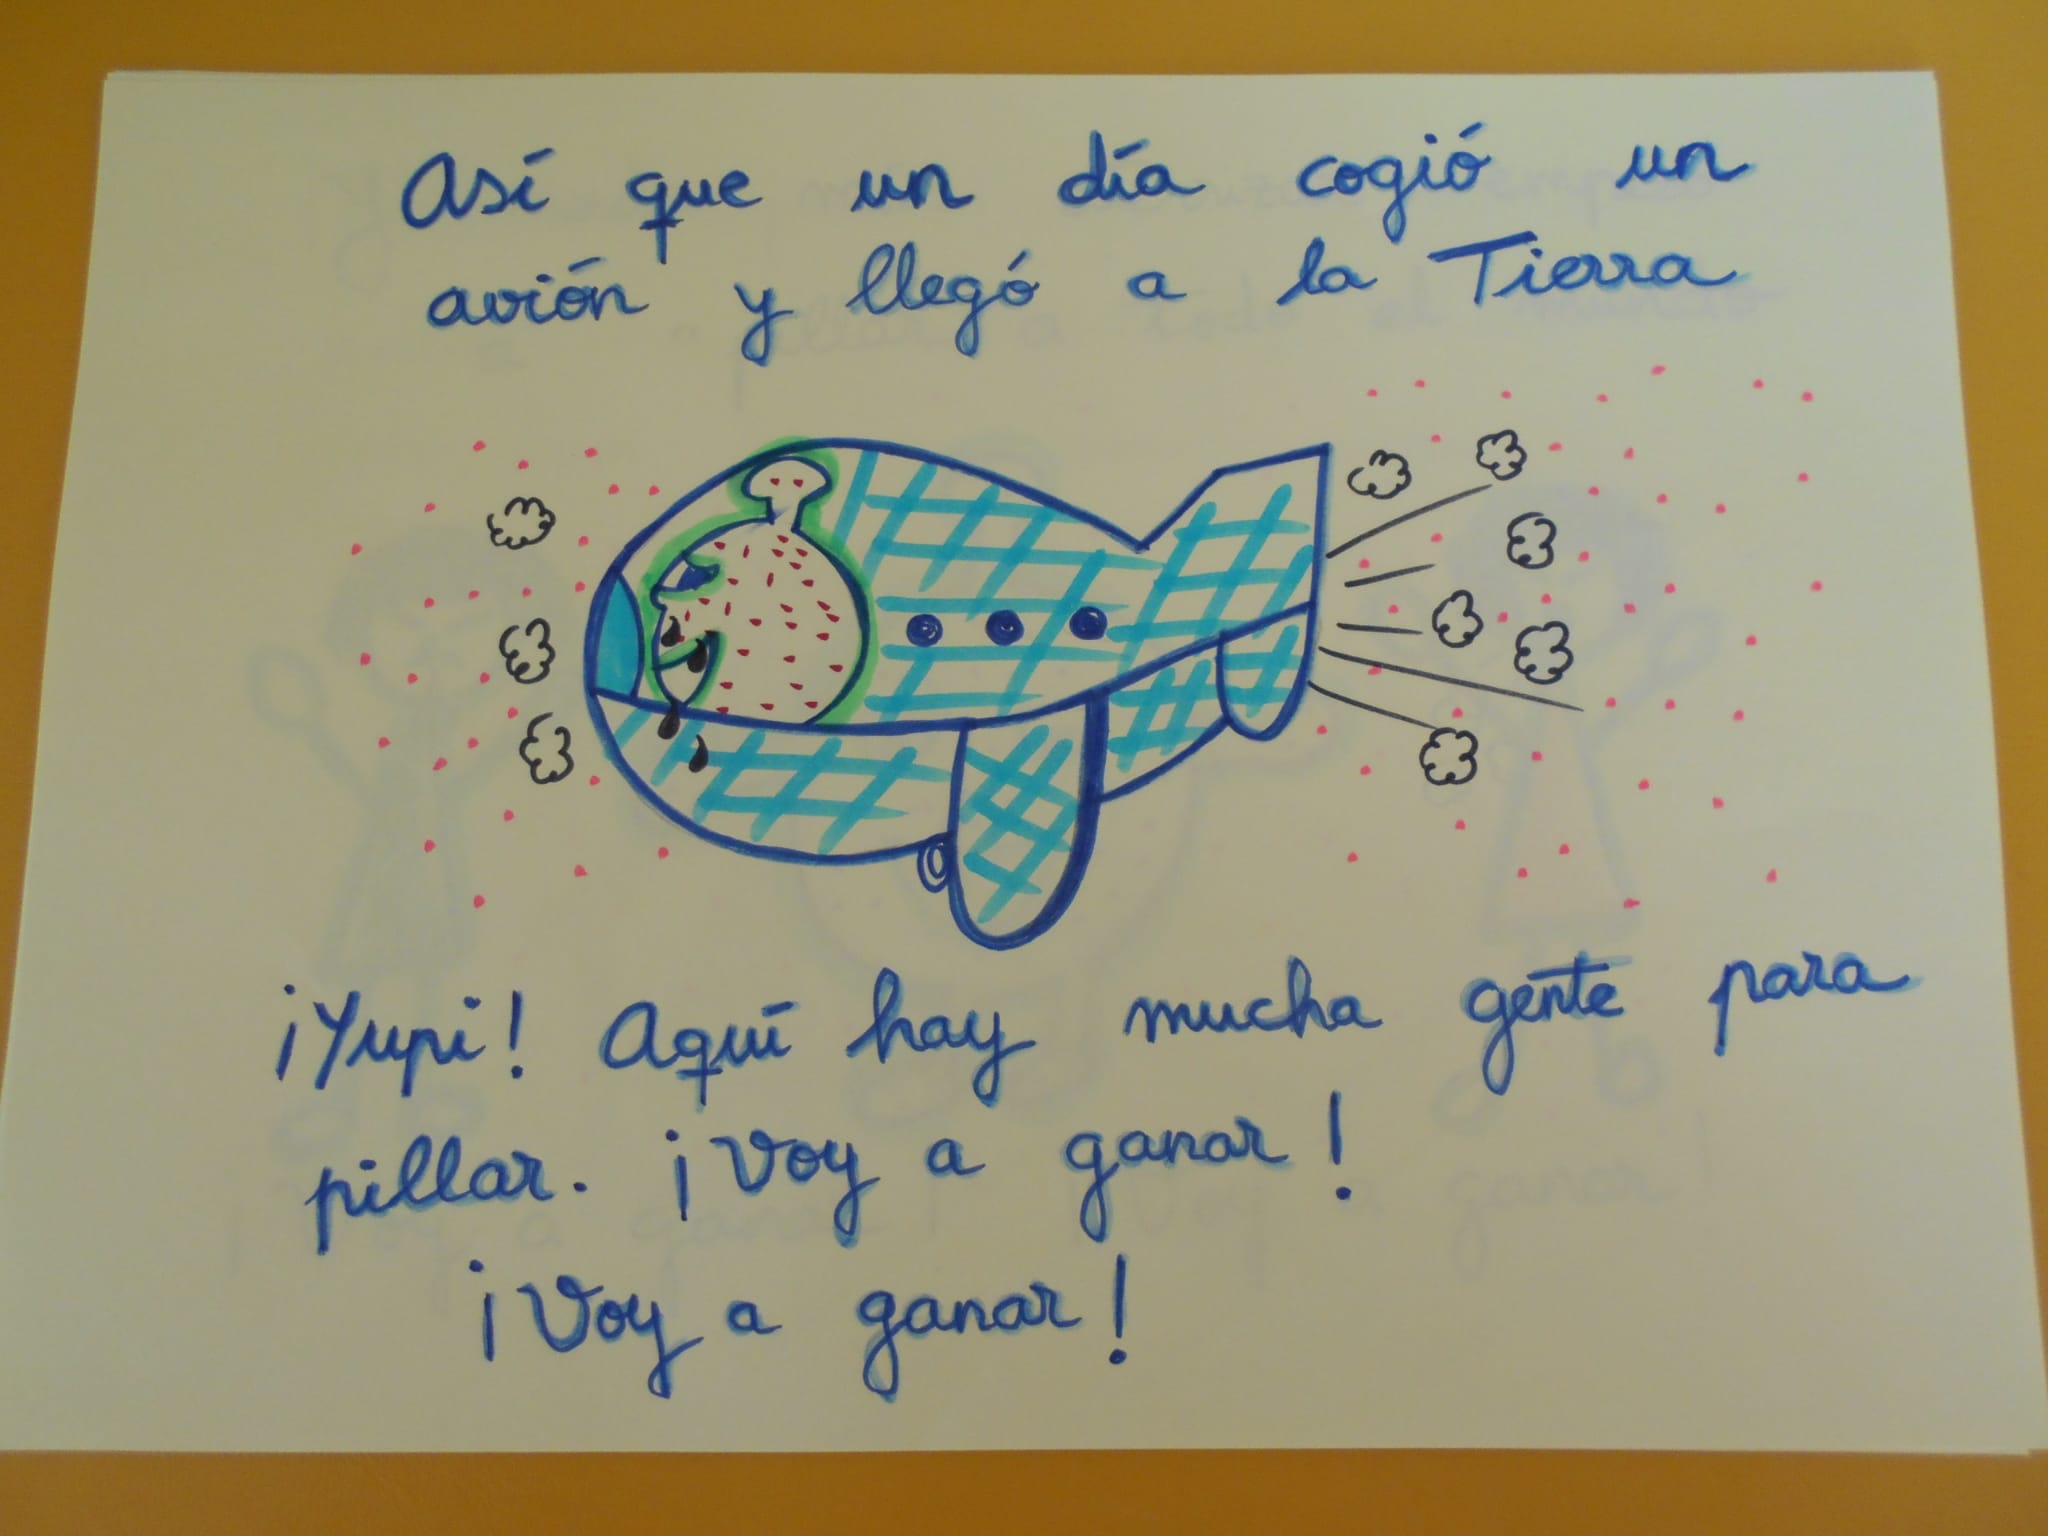 Así que un día cogió un
avión y llegó a la Tierra
¡Yupi! Aquí hay mucha gente para
pillar. ¡Voy a ganar!
¡Voy a ganar!